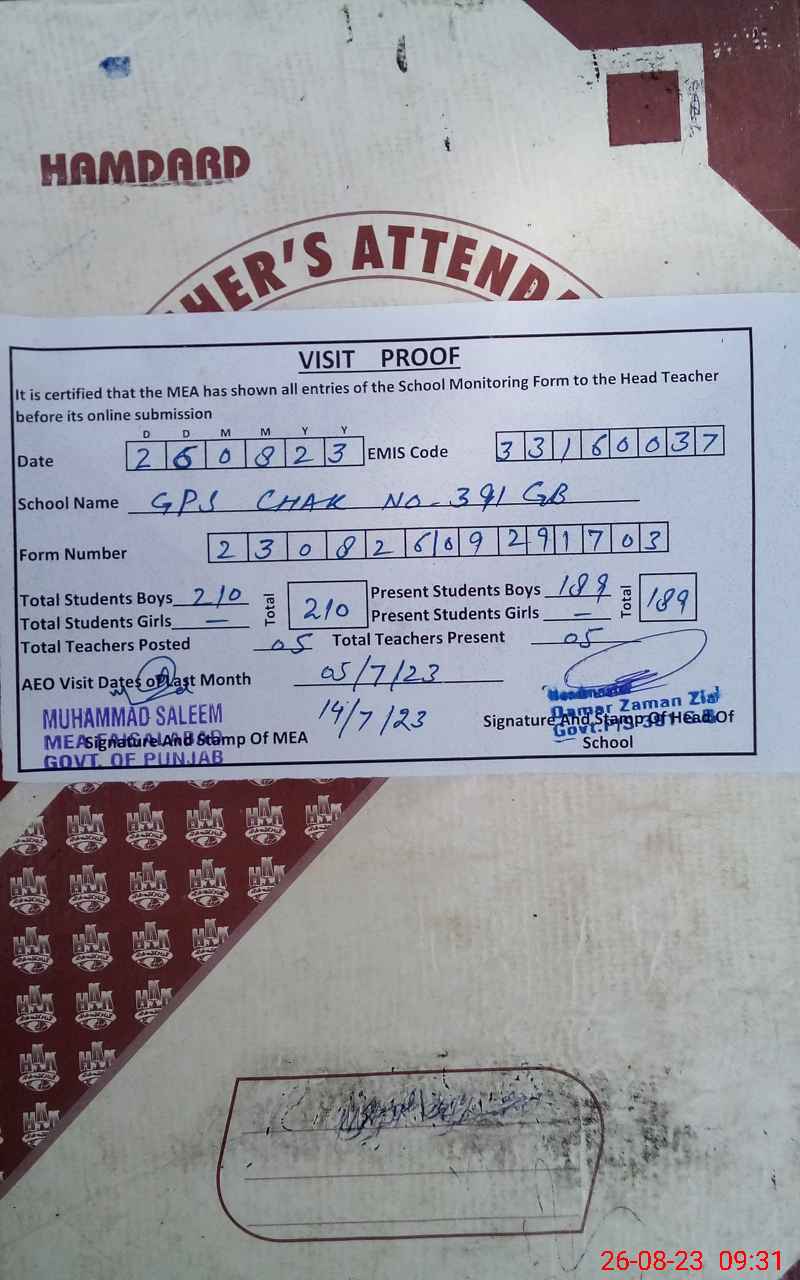 HAMDARD
HER'S ATTENDA
VISIT PROOF
It is certified that the MEA has shown all entries of the School Monitoring Form to the Head Teacher
before its online submission
D D M M Y Y
Date 2 6 0 8 2 3 EMIS Code 3 3 1 6 0 0 3 7
School Name GPS CHAK NO. 391 GB
Form Number 2 3 0 8 2 6 0 9 2 9 1 7 0 3
Total Students Boys 210 Total 210 Present Students Boys 189 Total 189
Total Students Girls — Present Students Girls —
Total Teachers Posted 05 Total Teachers Present 05
AEO Visit Dates of Last Month 05/7/23
14/7/23
MUHAMMAD SALEEM
MEA FAISALABAD
GOVT. OF PUNJAB
Signature And Stamp Of MEA
Headmaster
Qamar Zaman Zia
Govt. P/S 391 G.B
Signature And Stamp Of Head Of
School
26-08-23 09:31